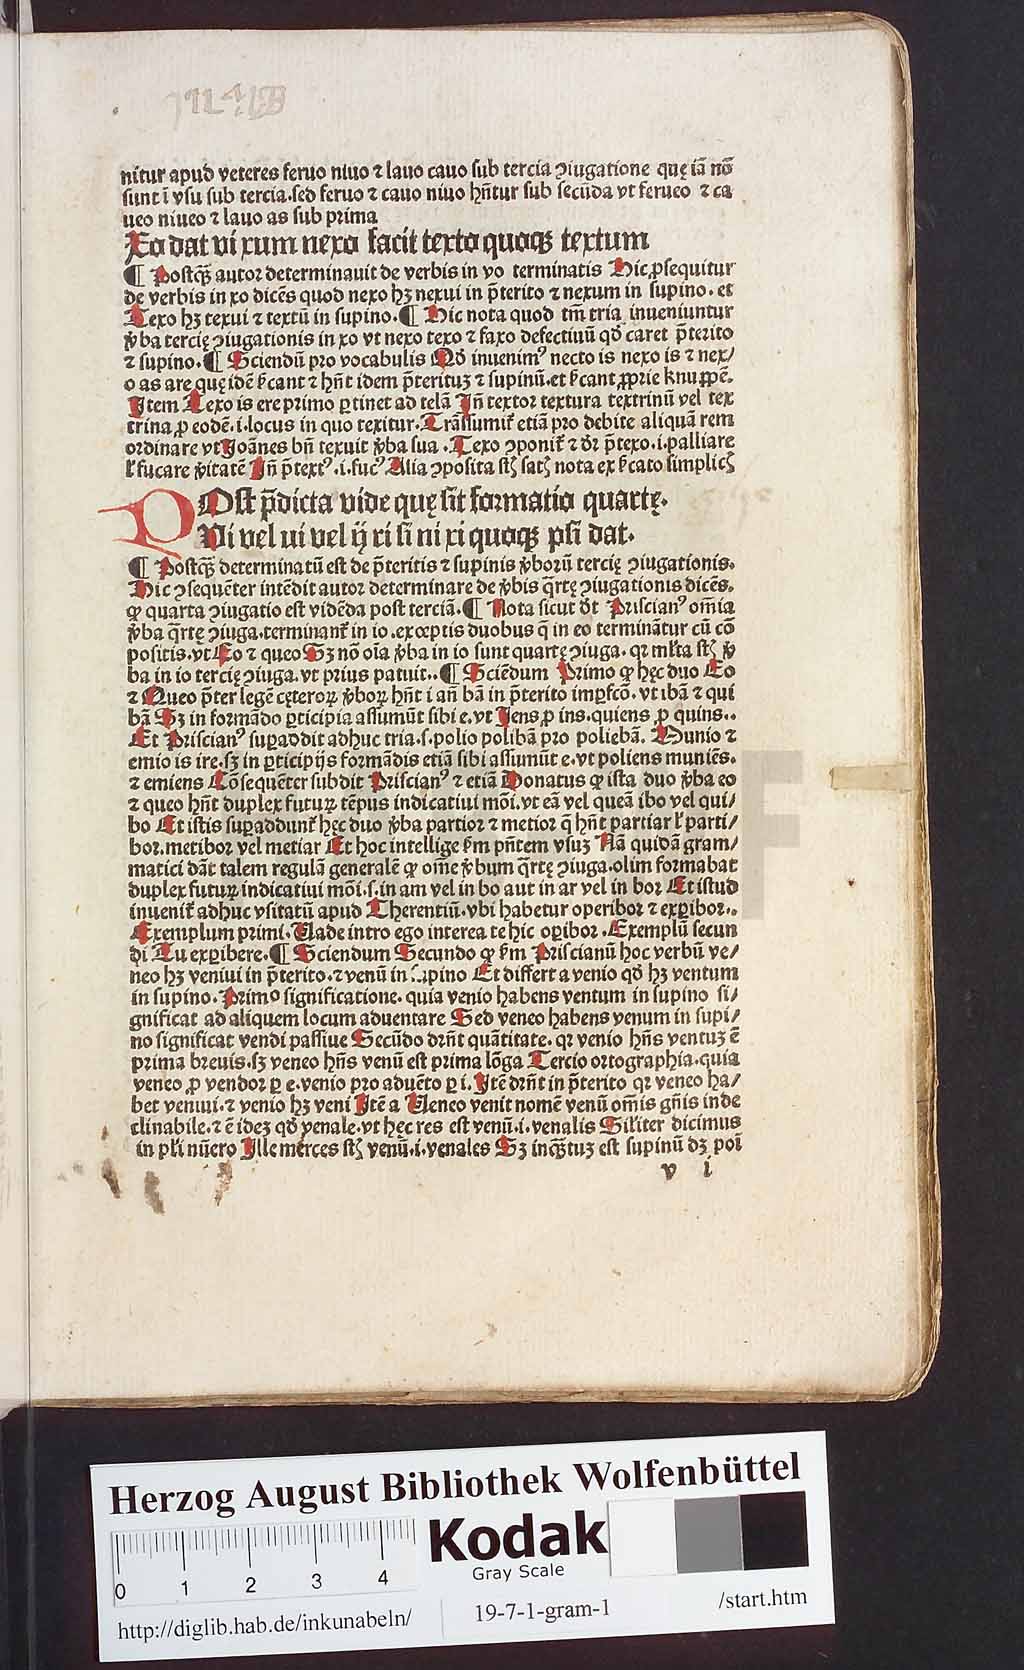 nitur apud veteres feruo niuo ⁊ lauo cauo sub tercia ꝯiugatione quę iā nō
sunt ī vsu sub tercia.sed feruo ⁊ cauo niuo hn̄tur sub secūda vt ferueo ⁊ ca
ueo niueo ⁊ lauo as sub prima
Xo dat vi xum nexo facit texto quoqꝫ textum
¶ Postqꝫ̄ autor determinauit de verbis in vo terminatis Hic ꝓsequitur
de verbis in xo dicēs quod nexo hꝫ nexui in p̄terito ⁊ nexum in supino. et
Texo hꝫ texui ⁊ textū in supino.¶ Hic nota quod tm̄ tria inueniuntur
v̄ba tercię ꝯiugationis in xo vt nexo texo ⁊ faxo defectiuū qd̄ caret p̄terito
⁊ supino.¶ Sciendū pro vocabulis Qd̄ inuenimꝰ necto is nexo is ⁊ nex/
o as are quę idē s̄cant ⁊ hn̄t idem p̄terituꝫ ⁊ supinū.et s̄cant ꝓprie knuppē.
Item Texo is ere primo ꝑtinet ad telā In̄ textor textura textrinū vel tex
trina ꝓ eodē.i.locus in quo texitur.Trāssumit̄ etiā pro debite aliquā rem
ordinare vt Joānes bn̄ texuit v̄ba sua .Texo ꝯponit̄ ⁊ dr̄ p̄texo.i.palliare
l̄ fucare v̄itatē In̄ p̄textꝰ.i.fucꝰ Alia ꝯposita st̄ satꝭ nota ex s̄cato simplicꝭ
POst p̄dicta vide quę sit formatio quartę.
Vi vel ui vel ij ri si ni xi quoqꝫ psi dat.
¶ Postqꝫ̄ determinatū est de p̄teritis ⁊ supinis v̄borū tercię ꝯiugationis.
Hic ꝯsequēter intēdit autor determinare de v̄bis q̄rtę ꝯiugationis dicēs.
ꝙ quarta ꝯiugatio est vidēda post terciā.¶ Nota sicut dr̄t Priscianꝰ om̄ia
v̄ba q̄rtę ꝯiuga.terminant̄ in io.exceptis duobus q̄ in eo terminātur cū cō
positis.vt Eo ⁊ queo Sꝫ nō oīa v̄ba in io sunt quartę ꝯiuga. qꝛ ml̄ta st̄ v̄
ba in io tercię ꝯiuga.vt prius patuit..¶ Sciēdum Primo ꝙ hęc duo Eo
⁊ Queo p̄ter legē cęteroꝝ v̄boꝝ hn̄t i an̄ bā in p̄terito imꝑfcō. vt ibā ⁊ qui
bā Sꝫ in formādo ꝑticipia assumūt sibi e.vt Iens ꝓ ins.quiens ꝓ quins..
Et Priscianꝰ suꝑaddit adhuc tria.s.polio polibā pro poliebā. Munio ⁊
emio is ire.sꝫ in ꝑticipijs formādis etiā sibi assumūt e.vt poliens muniēs.
⁊ emiens Cōsequēter subdit Priscianꝰ ⁊ etiā Donatus ꝙ ista duo v̄ba eo
⁊ queo hn̄t duplex futuꝝ tēpus indicatiui mōi.vt eā vel queā ibo vel qui/
bo Et istis suꝑaddunt̄ hęc duo v̄ba partior ⁊ metior q̄ hn̄t partiar l̄ parti/
bor.metibor vel metiar Et hoc intellige s̄m pn̄tem vsuꝫ Nā quidā gram/
matici dāt talem regulā generalē ꝙ om̄e v̄bum q̄rtę ꝯiuga.olim formabat
duplex futuꝝ indicatiui mōi.s.in am vel in bo aut in ar vel in bor Et istud
inuenit̄ adhuc vsitatū apud Therentiū.vbi habetur operibor ⁊ exꝑibor..
Exemplum primi.Vade intro ego interea te hic oꝑibor .Exemplū secun
di Tu exꝑibere.¶ Sciendum Secundo ꝙ s̄m Priscianū hoc verbū ve/
neo hꝫ veniui in p̄terito.⁊ venū in supino Et differt a venio qd̄ hꝫ ventum
in supino.Primo significatione. quia venio habens ventum in supino si/
gnificat ad aliquem locum aduentare Sed veneo habens venum in supi/
no significat vendi passiue Secūdo drn̄t quātitate. qꝛ venio hn̄s ventuꝫ ē
prima breuis.sꝫ veneo hn̄s venū est prima lōga Tercio ortographia.quia
veneo ꝓ vendor ꝑ e.venio pro aduēto ꝑ i.Itē drn̄t in p̄terito qꝛ veneo ha/
bet veniui.⁊ venio hꝫ veni Itē a Veneo venit nomē venū om̄is gn̄is inde
clinabile.⁊ ē ideꝫ qd̄ venale.vt hęc res est venū.i.venalis Silīter dicimus
in pl̄i nūero Ille merces st̄ venū.i.venales Sꝫ inqꝫ̄tuꝫ est supinū dꝫ poī
v i
Herzog August Bibliothek Wolfenbüttel
0 1 2 3 4
Kodak
Gray Scale
http://diglib.hab.de/inkunabeln/
19-7-1-gram-1
/start.htm